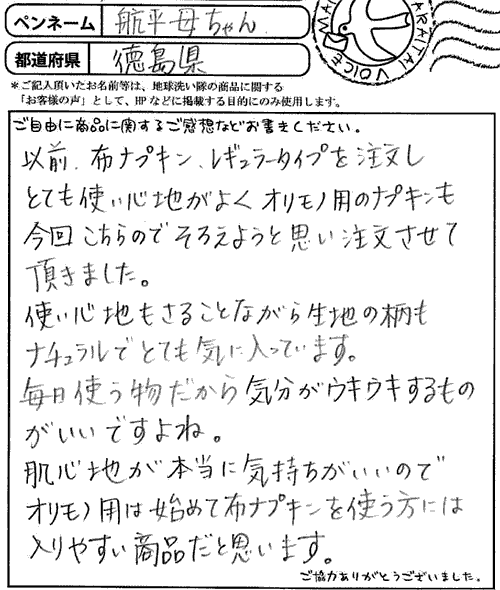 ペンネーム 航平母ちゃん
都道府県 徳島県
＊ご記入頂いたお名前等は、地球洗い隊の商品に関する
「お客様の声」として、HPなどに掲載する目的にのみ使用します。
ご自由に商品に関するご感想などお書きください。
以前、布ナプキン、レギュラータイプを注文し
とても使い心地がよく オリモノ用のナプキンも
今回こちらのでそろえようと思い注文させて
頂きました。
使い心地もさることながら生地の柄も
ナチュラルでとても気に入っています。
毎日使う物だから気分がウキウキするもの
がいいですよね。
肌心地が本当に気持ちがいいので
オリモノ用は始めて布ナプキンを使う方には
入りやすい商品だと思います。
ご協力ありがとうございました。
ARAITAI VOICE